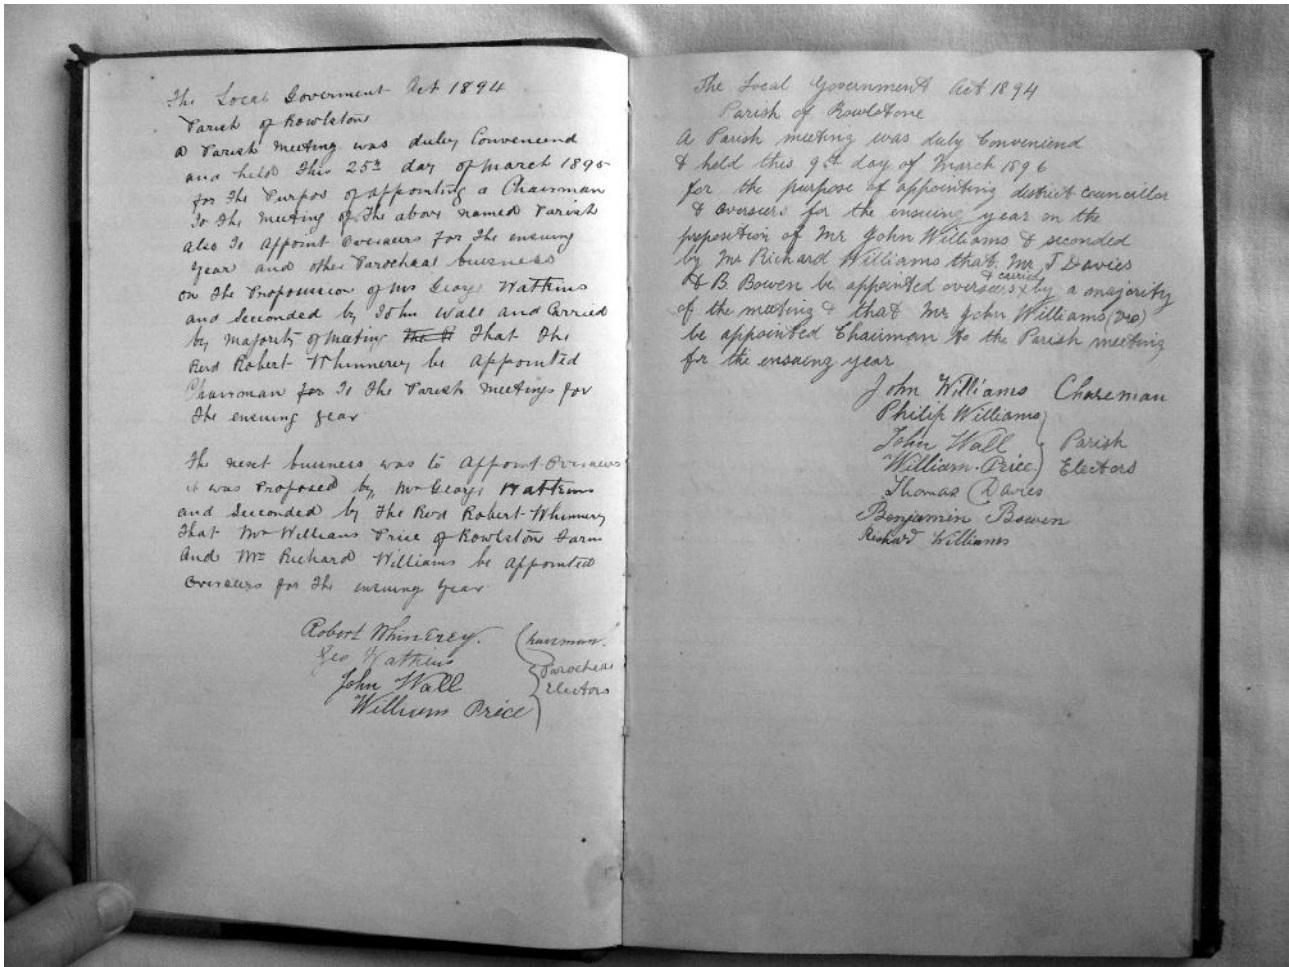 The Local Goverment Act 1894
Parish of Rowlstone
A Parish Meeting was duley Conveniend
and held This 25th day of March 1895
for The Purpos of appointing a Chairman
To The Meeting of The above named Parish
also To appoint Overseers for The ensuing
year and other Parocheal buisness
on The Proposission of Mr George Watkins
and Seconded by John Wall and Carried
by majority of Meeting That The
Revd Robert Whinnerey be appointed
Chairman for To The Parish Meetings for
The ensuing year
The next buisness was to appoint Overseers
it was Proposed by Mr George Watkins
and Seconded by The Revd Robert Whinnery
That Mr William Price of Rowlston Farm
and Mr Richard Williams be appointed
Overseers for The ensuing year
Robert Whinerey. Chairman.
Geo Watkins
John Wall
William Price
Parocheal
Electors
The Local Government Act 1894
Parish of Rowlstone
A Parish meeting was duly Conveniend
& held this 9 day of March 1896
for the purpose of appointing district councillor
& overseers for the ensuing year on the
proposition of Mr John Williams & seconded
by Mr Richard Williams that Mr T Davies
& B. Bowen be appointed overseers & carried by a majority
of the meeting & that Mr John Williams
be appointed Chairman to the Parish meeting
for the ensuing year
John Williams Chareman
Philip Williams
John Wall Parish
William Price Electors
Thomas Davies
Benjamin Bowen
Richard Williams